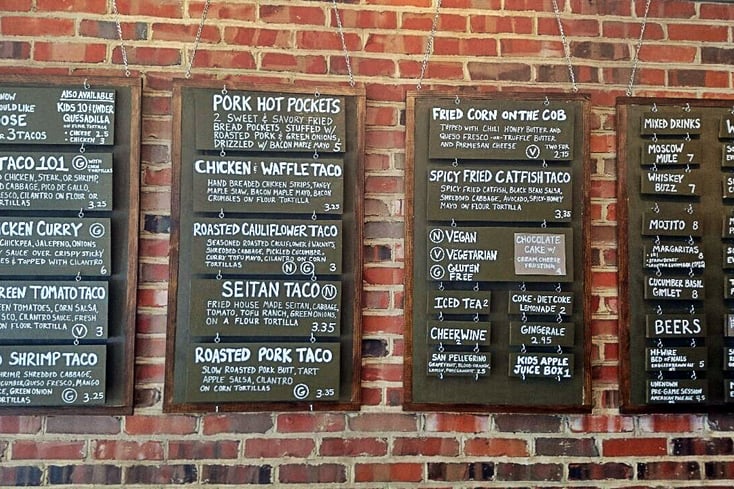 NOW
OULD LIKE
OSE
3 TACOS
ALSO AVAILABLE
KIDS 10 & UNDER
QUESADILLA
ON FLOUR TORTILLA
• CHEESE 2.5
• CHICKEN 3
TACO 101 G WITH CORN TORTILLAS
CHICKEN, STEAK, OR SHRIMP,
ED CABBAGE, PICO DE GALLO,
FRESCO, CILANTRO ON FLOUR OR
TORTILLAS 3.25
CKEN CURRY G
CHICKPEA, JALEPENO, ONIONS
Y SAUCE OVER CRISPY STICKY
ES & TOPPED WITH CILANTRO 6
REEN TOMATO TACO
EEN TOMATOES, CORN SALSA,
SCO, CILANTRO SAUCE, FRESH
N FLOUR TORTILLA V 3
SHRIMP TACO
SHRIMP, SHREDDED CABBAGE,
CUCUMBER, QUESO FRESCO, MANGO
GREEN ONION G 3.25
PORK HOT POCKETS
2 SWEET & SAVORY FRIED
BREAD POCKETS, STUFFED W/
ROASTED PORK & GREEN ONIONS,
DRIZZLED W/ BACON MAYO 5
CHICKEN & WAFFLE TACO
HAND BREADED CHICKEN STRIPS, TANGY
MAPLE SLAW, BACON MAPLE MAYO, BACON
CRUMBLES ON FLOUR TORTILLA 3.25
ROASTED CAULIFLOWER TACO
SEASONED ROASTED CAULIFLOWER & WALNUTS,
SHREDDED CABBAGE, PICKLED CUCUMBER,
CURRY TOFU MAYO, CILANTRO ON CORN
TORTILLAS N G 3
SEITAN TACO N
FRIED HOUSE MADE SEITAN, CABBAGE,
TOMATO, TOFU RANCH, GREEN ONIONS,
ON A FLOUR TORTILLA 3.35
ROASTED PORK TACO
SLOW ROASTED PORK BUTT, TART
APPLE SALSA, CILANTRO
ON CORN TORTILLAS G 3.25
FRIED CORN ON THE COB
TOPPED WITH CHILI HONEY BUTTER AND
QUESO FRESCO -OR- TRUFFLE BUTTER
AND PARMESAN CHEESE V TWO FOR 2.75
SPICY FRIED CATFISH TACO
SPICY FRIED CATFISH, BLACK BEAN SALSA,
SHREDDED CABBAGE, AVOCADO, SPICY-HONEY
MAYO ON FLOUR TORTILLA 3.35
N VEGAN
V VEGETARIAN
G GLUTEN
FREE
CHOCOLATE
CAKE W/
CREAM CHEESE
FROSTING
ICED TEA 2
COKE - DIET COKE
LEMONADE 2
CHEERWINE 2
GINGERALE
2.95
SAN PELLEGRINO
GRAPEFRUIT, BLOOD-ORANGE,
LEMON, POMEGRANATE 2.5
KIDS APPLE
JUICE BOX 1
MIXED DRINKS
MOSCOW
MULE 7
WHISKEY
BUZZ 7
MOJITO 8
MARGARITAS
CUCUMBER BASIL
GIMLET 8
BEERS
HI-WIRE
BED OF NAILS 5
UNKNOWN
PRE-GAME SESSION
AMERICAN PALE ALE 4.5